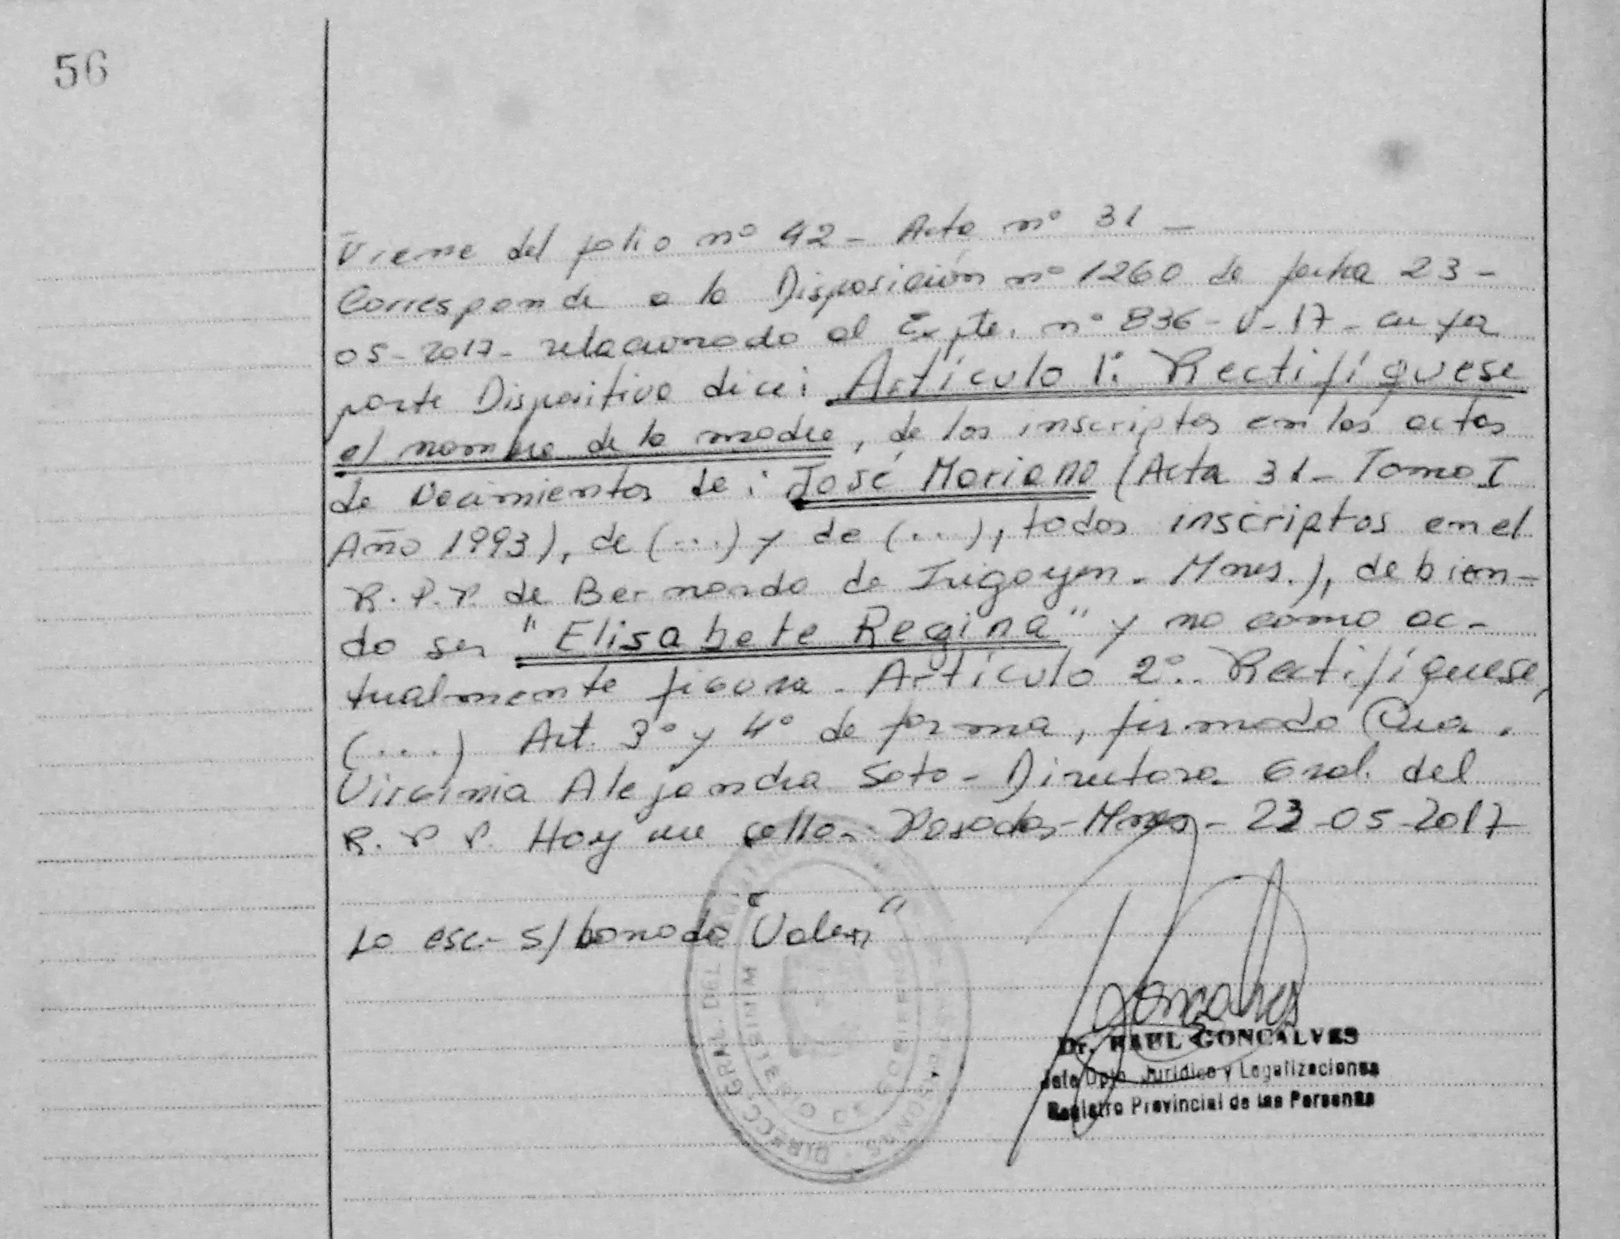 56
Viene del folio nº 42 - Acta nº 31 -
Corresponde a la Disposición nº 1260 de fecha 23 -
05 - 2017 - relacionado al Expte. nº 836 - V - 17 - cuya
parte Dispositiva dice: Artículo 1: Rectifíquese
el nombre de la madre, de los inscriptos en las actas
de Nacimientos de: José Mariano (Acta 31 - Tomo I
Año 1993), de (...) y de (...), todos inscriptos en el
R. P. P. de Bernardo de Irigoyen - Mnes.), debien-
do ser "Elisabete Regina" y no como ac-
tualmente figura - Artículo 2º - Rectifíquese,
(...) Art. 3º y 4º de forma, firmado
Virginia Alejandra Soto - Directora Gral. del
R. P. P. Hay un sello - Posadas - Mnes - 23 - 05 - 2017
Lo esc - s/ borrado "Valen"
DIRECC. GRAL. DEL
MINISTERIO DE GOBIERNO
Goncalves
Dr. RAUL GONCALVES
Jefe Dpto. Jurídico y Legalizaciones
Registro Provincial de las Personas